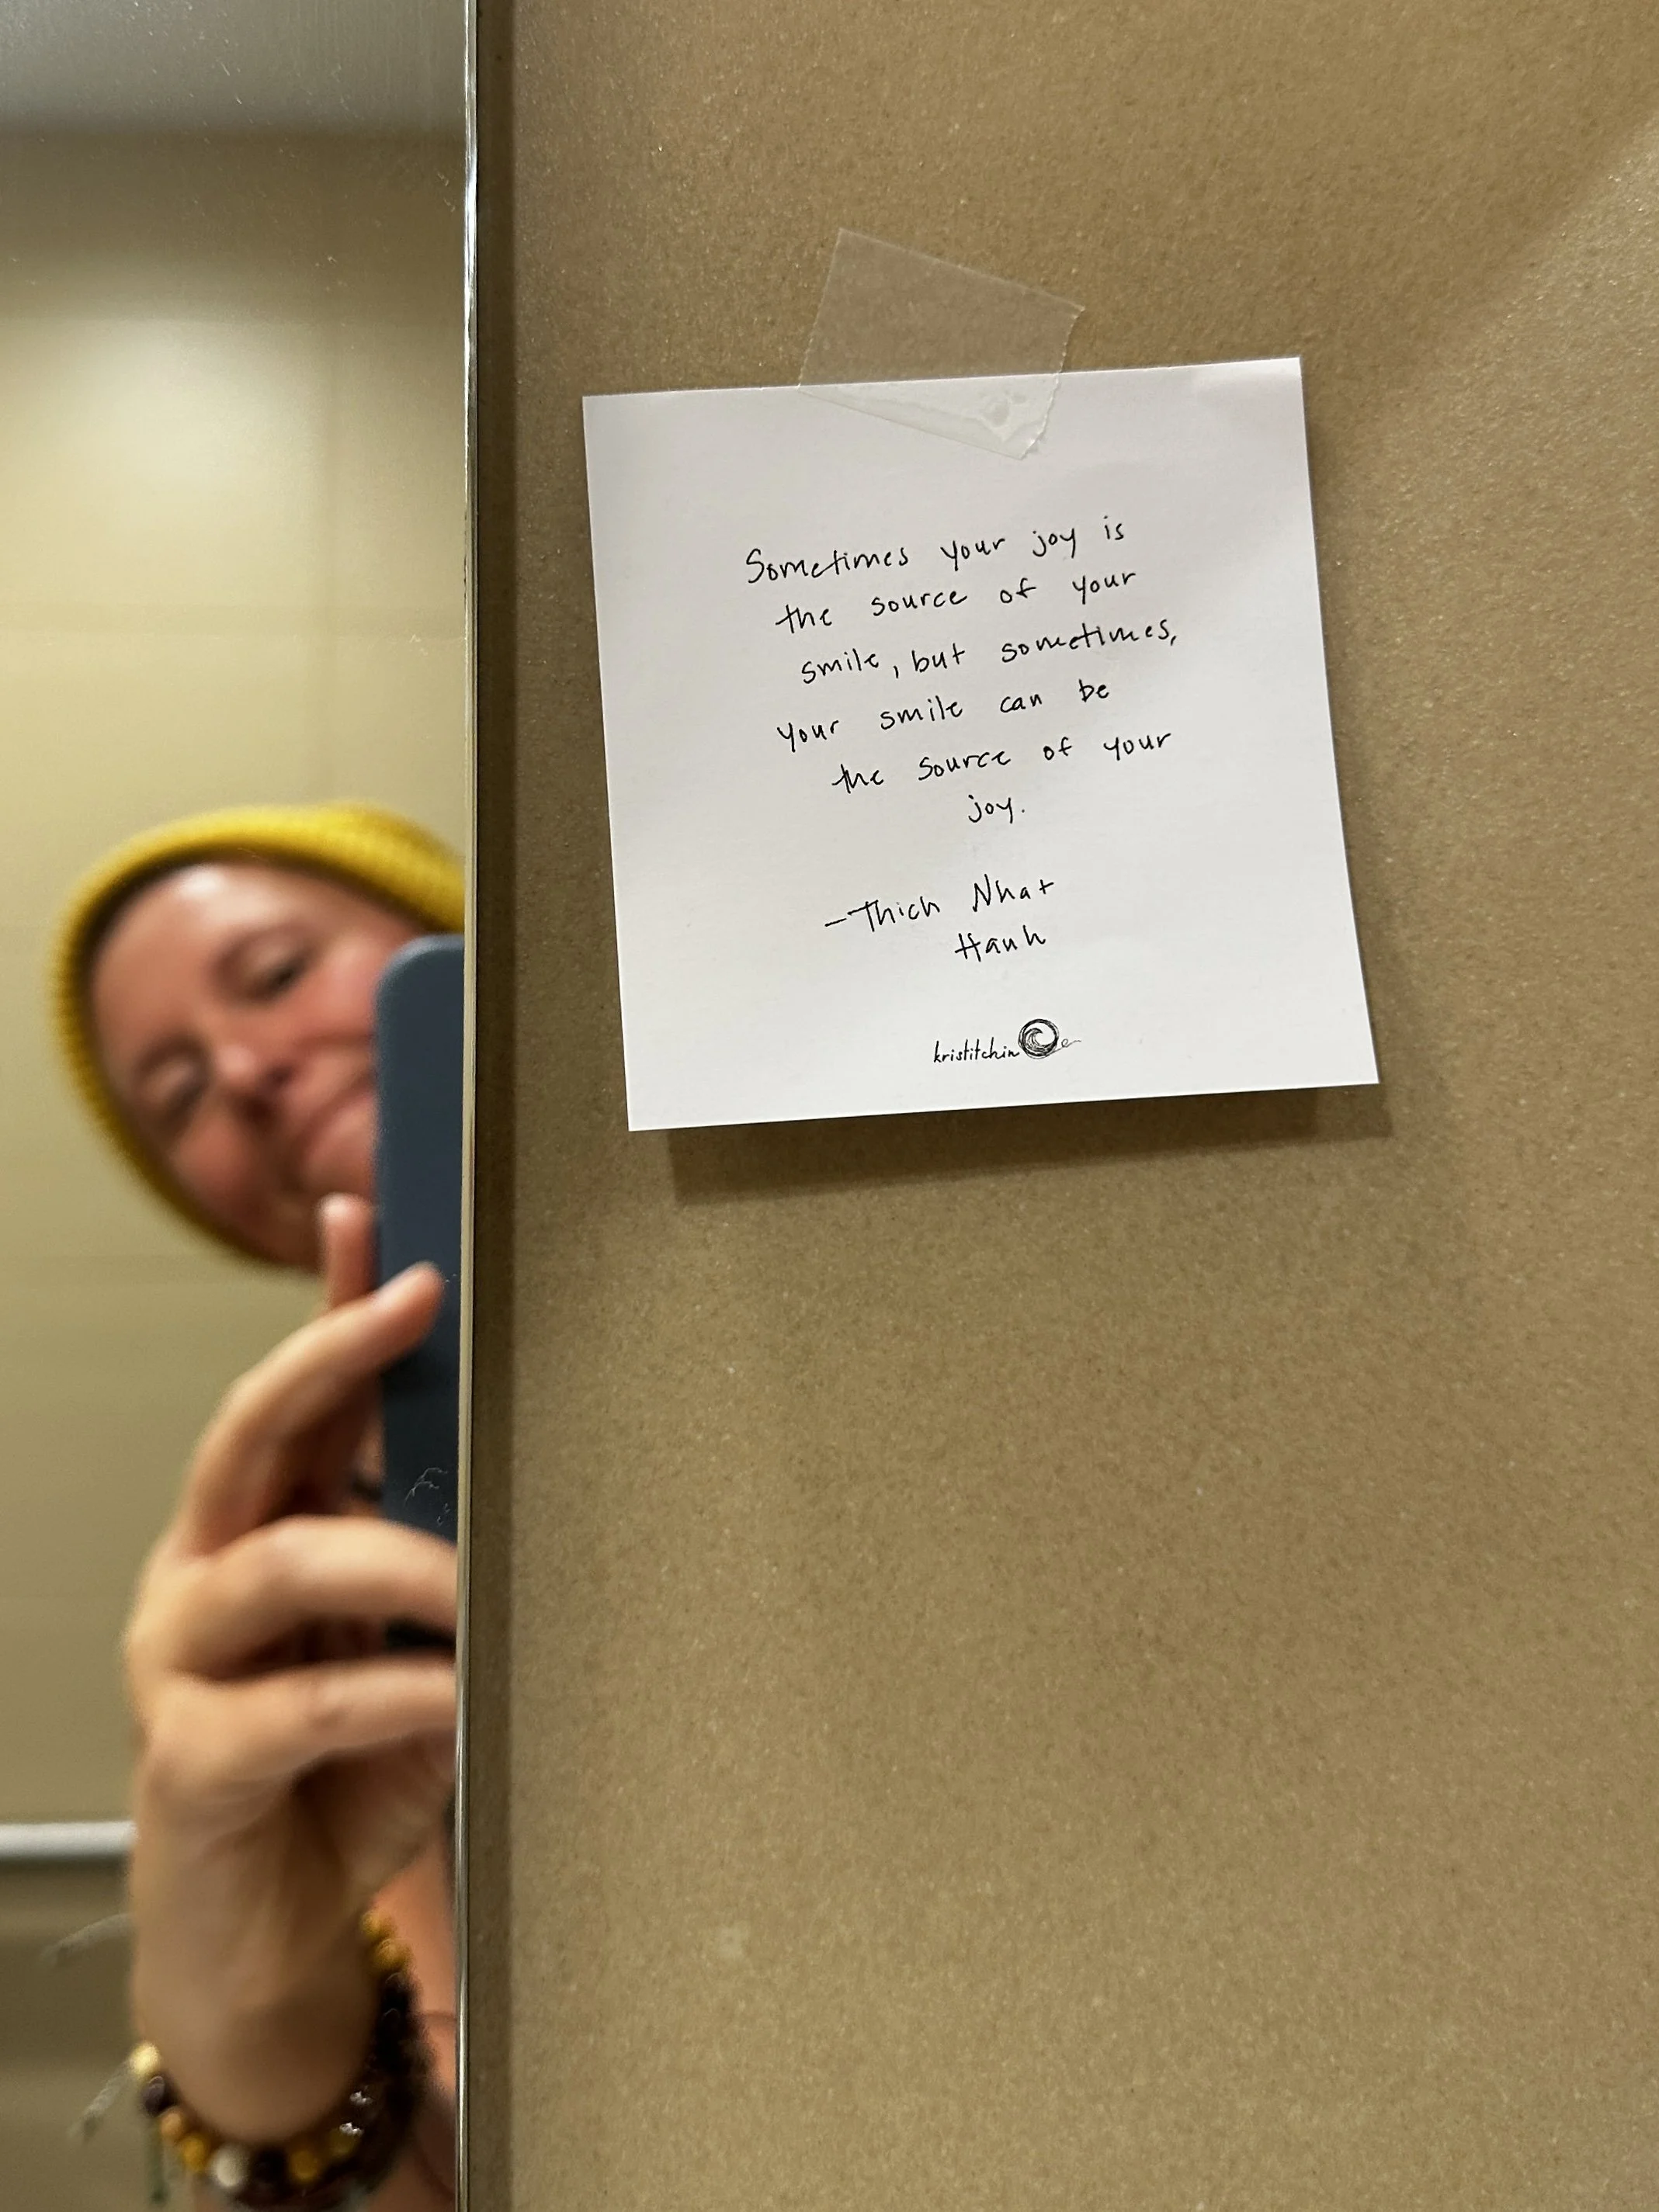 Sometimes your joy is
the source of your
smile, but sometimes,
your smile can be
the source of your
joy.
-Thich Nhat
Hanh
kristitchin